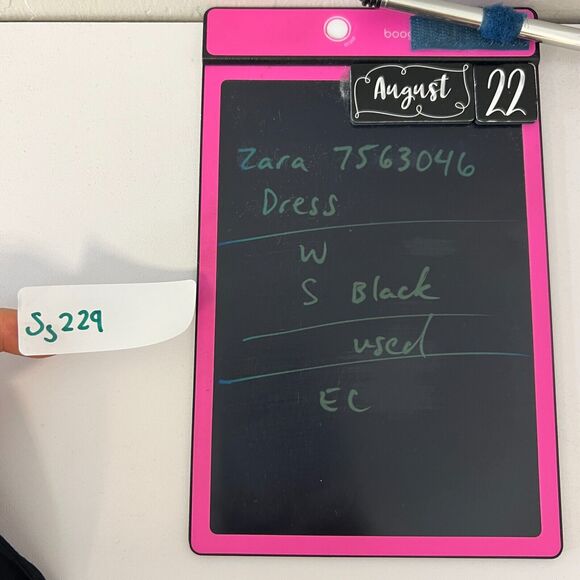 boog
August 22
Zara 7563046
Dress
W
S Black
used
EC
Ss229